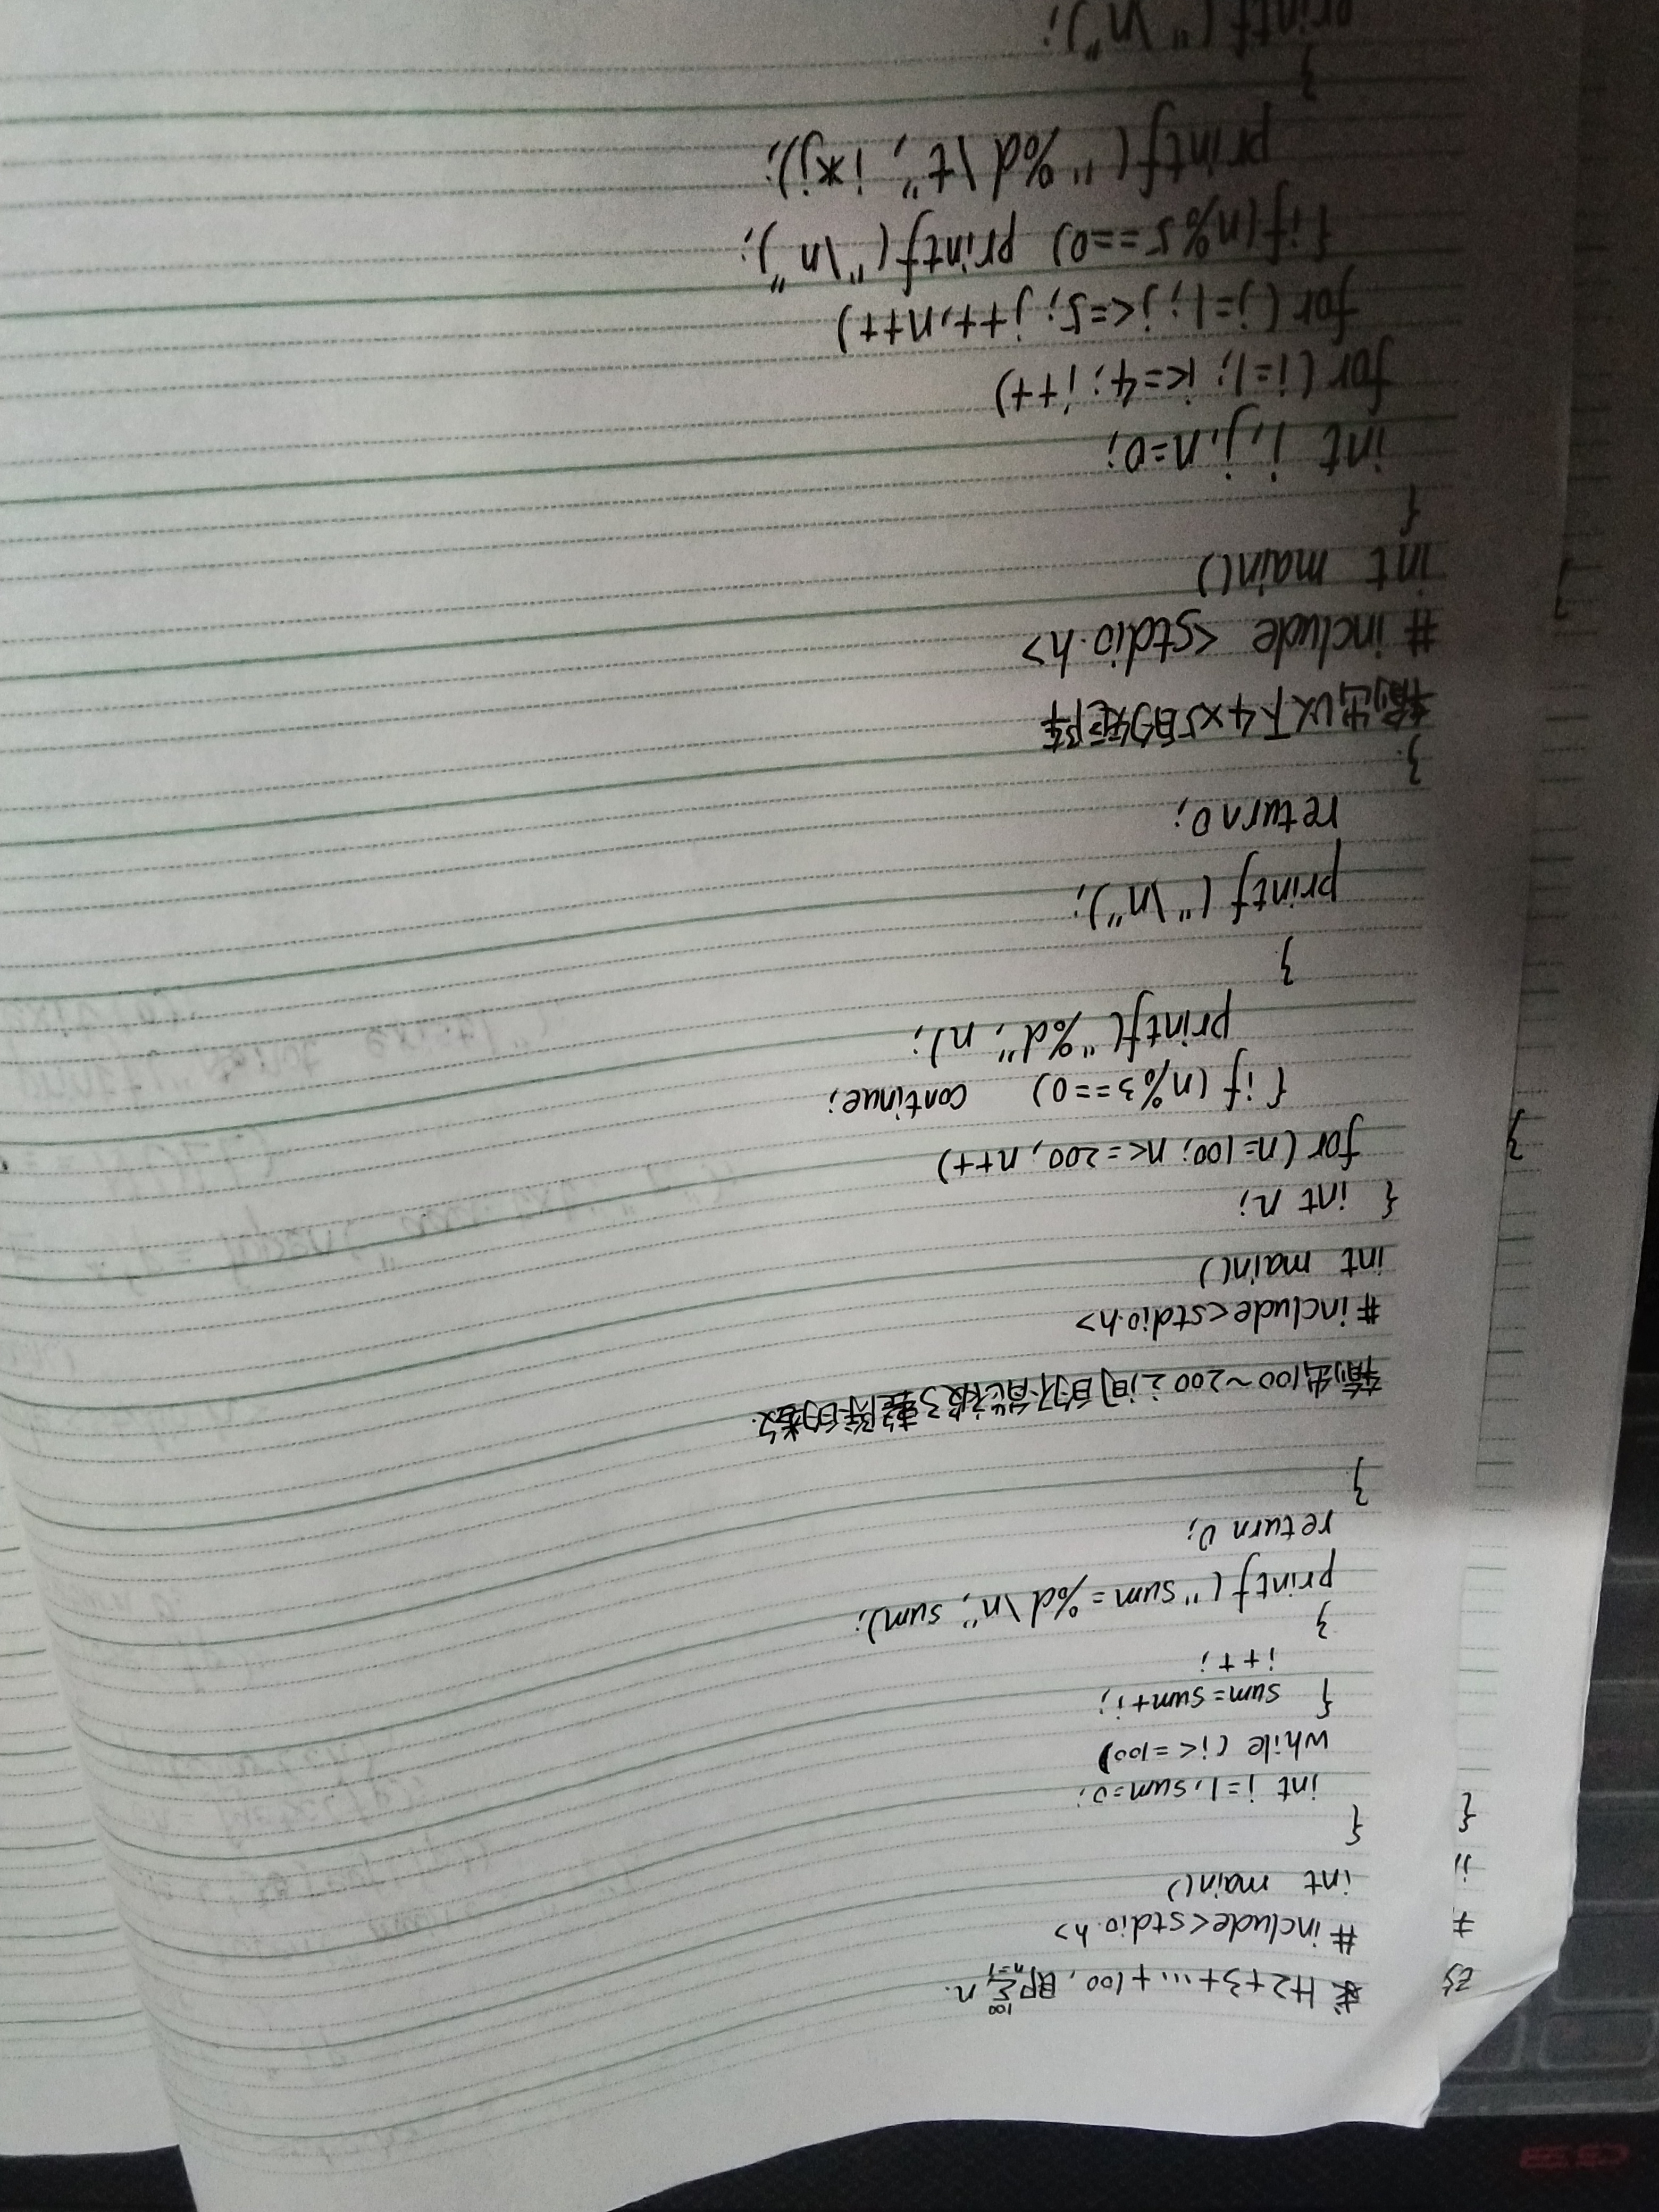 求1+2+3+···+100，即∑n. 100 n=1
#include<stdio.h>
int main()
{
int i=1,sum=0;
while (i<=100)
{ sum=sum+i;
i++;
}
printf("sum=%d\n",sum);
return 0;
}
输出100~200之间的不能被3整除的数.
#include<stdio.h>
int main()
{ int n;
for (n=100; n<=200, n++)
{if (n%3==0) continue;
printf("%d",n);
}
printf("\n");
return 0;
}
输出以下4×5的矩阵
#include <stdio.h>
int main()
{
int i,j,n=0;
for (i=1; i<=4; i++)
for (j=1; j<=5; j++,n++)
{if(n%5==0) printf("\n");
printf("%d\t", i*j);
}
printf("\n");